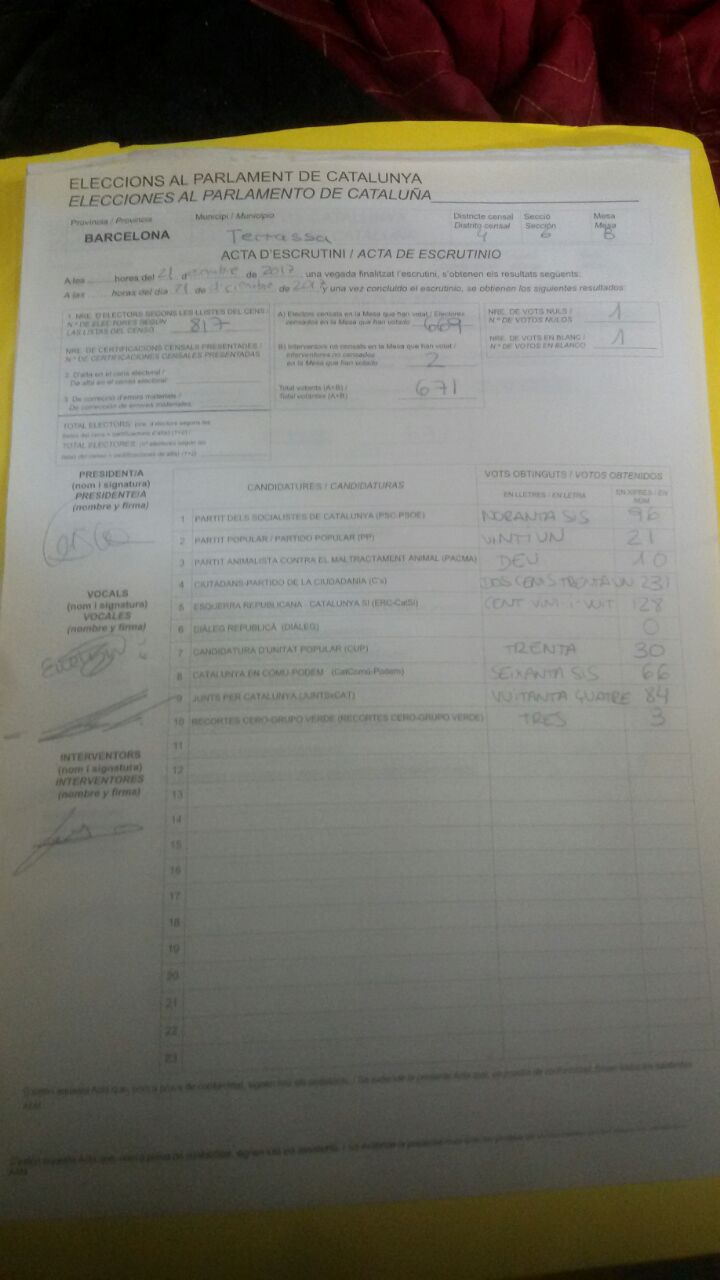 ELECCIONS AL PARLAMENT DE CATALUNYA
ELECCIONES AL PARLAMENTO DE CATALUÑA
Provincia / Provincia Municipi / Municipio Districte censal Secció Mesa
Distrito censal Sección Mesa
BARCELONA Terrassa 4 6 B
ACTA D'ESCRUTINI / ACTA DE ESCRUTINIO
A les hores del 21 d de 2017, una vegada finalitzat l'escrutini, s'obtenen els resultats següents:
A las horas del día 21 de diciembre de 2017 y una vez concluido el escrutinio, se obtienen los siguientes resultados:
1. NRE. D'ELECTORS SEGONS LES LLISTES DEL CENS /
N.º DE ELECTORES SEGÚN
LAS LISTAS DEL CENSO 817
NRE. DE CERTIFICACIONS CENSALS PRESENTADES /
N.º DE CERTIFICACIONES CENSALES PRESENTADAS
2. D'alta en el cens electoral /
De alta en el censo electoral
3. De correcció d'errors materials /
De corrección de errores materiales
TOTAL ELECTORS:
TOTAL ELECTORES:
A) Electors censats en la Mesa que han votat / Electores
censados en la Mesa que han votado 669
B) Interventors no censats en la Mesa que han votat /
Interventores no censados
en la Mesa que han votado 2
Total votants (A+B) /
Total votantes (A+B) 671
NRE. DE VOTS NULS /
N.º DE VOTOS NULOS 1
NRE. DE VOTS EN BLANC /
N.º DE VOTOS EN BLANCO 1
PRESIDENT/A
(nom i signatura)
PRESIDENTE/A
(nombre y firma)
VOCALS
(nom i signatura)
VOCALES
(nombre y firma)
INTERVENTORS
(nom i signatura)
INTERVENTORES
(nombre y firma)
CANDIDATURES / CANDIDATURAS VOTS OBTINGUTS / VOTOS OBTENIDOS
EN LLETRES / EN LETRA EN XIFRES / EN NÚM.
1 PARTIT DELS SOCIALISTES DE CATALUNYA (PSC-PSOE) NORANTA SIS 96
2 PARTIT POPULAR / PARTIDO POPULAR (PP) VINTIUN 21
3 PARTIT ANIMALISTA CONTRA EL MALTRACTAMENT ANIMAL (PACMA) DEU 10
4 CIUTADANS-PARTIDO DE LA CIUDADANÍA (C's) DOSCENTS TRENTA UN 231
5 ESQUERRA REPUBLICANA - CATALUNYA SÍ (ERC-CatSí) CENT VINT-I-VUIT 128
6 DIÀLEG REPUBLICÀ (DIÀLEG) 0
7 CANDIDATURA D'UNITAT POPULAR (CUP) TRENTA 30
8 CATALUNYA EN COMÚ-PODEM (CatComú-Podem) SEIXANTA SIS 66
9 JUNTS PER CATALUNYA (JUNTSxCAT) VUITANTA QUATRE 84
10 RECORTES CERO-GRUPO VERDE (RECORTES CERO-GRUPO VERDE) TRES 3
11
12
13
14
15
16
17
18
19
20
21
22
23